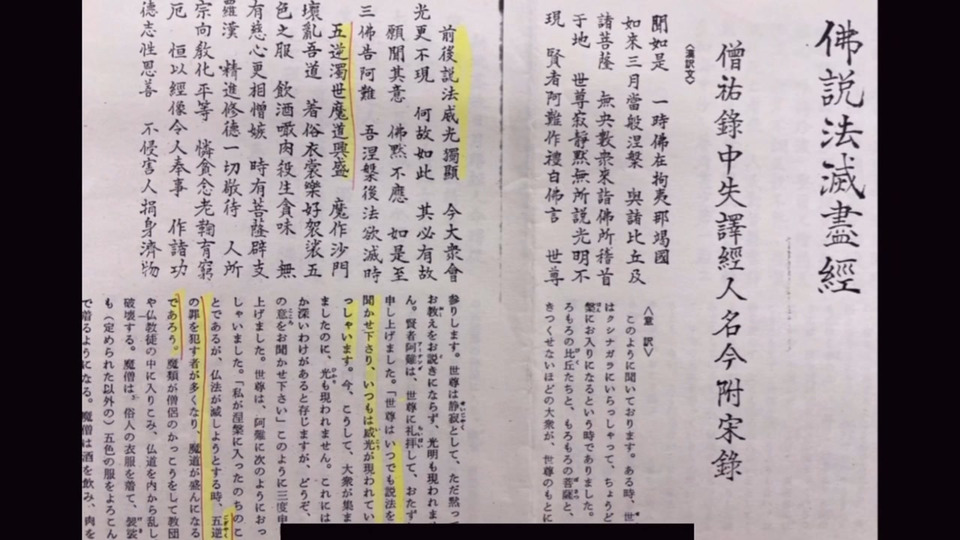 佛說法滅盡經
僧祐錄中失譯經人名今附宋錄
〈漢訳文〉
聞如是　一時佛在拘夷那竭國
如來三月當般涅槃　與諸比丘及
諸菩薩　無央數衆來詣佛所稽首
于地　世尊寂靜默無所說光明不
現　賢者阿難作禮白佛言　世尊
〈意訳〉
このように聞いております。ある時、世
はクシナガラにいらっしゃって、ちょうど
槃にお入りになるという時でありました。
ろもろの比丘たちと、もろもろの菩薩と、
きつくせないほどの大衆が、世尊のもとに
前後説法威光獨顯　今大衆會
光更不現　何故如此　其必有故
願聞其意　佛默不應　如是至
三佛告阿難　吾涅槃後法欲滅時
五逆濁世魔道興盛　魔作沙門
壞亂吾道　著俗衣裳樂好袈裟五
色之服　飲酒噉肉殺生貪味　無
有慈心更相憎嫉　時有菩薩辟支
羅漢　精進修德一切敬待　人所
宗向敎化平等　憐貧念老鞠育窮
厄　恒以經像令人奉事　作諸功
德志性恩善　不侵害人捐身濟物
参ります。世尊は静寂として、ただ黙って
お教えをお説きにならず、光明も現われませ
ん。賢者阿難は、世尊に礼拝して、おたず
申し上げました。「世尊はいつでも説法を
聞かせ下さり、いつもは威光が現われてい
っしゃいます。今、こうして、大衆が集ま
ましたのに、光も現われません。これには
か深いわけがあると存じますが、どうぞ、
の意をお聞かせ下さい」このように三度申
上げました。世尊は、阿難に次のようにおっ
しゃいました。「私が涅槃に入ったのちのこ
とであるが、仏法が滅しようとする時、五逆
の罪を犯す者が多くなり、魔道が盛んになる
であろう。魔類が僧侶のかっこうをして教団
や仏教徒の中に入りこみ、仏道を内から乱し
破壊する。魔僧は、俗人の衣服を着て、袈裟
も（定められた以外の）五色の服をよろこん
で着るようになる。魔僧は酒を飲み、肉を